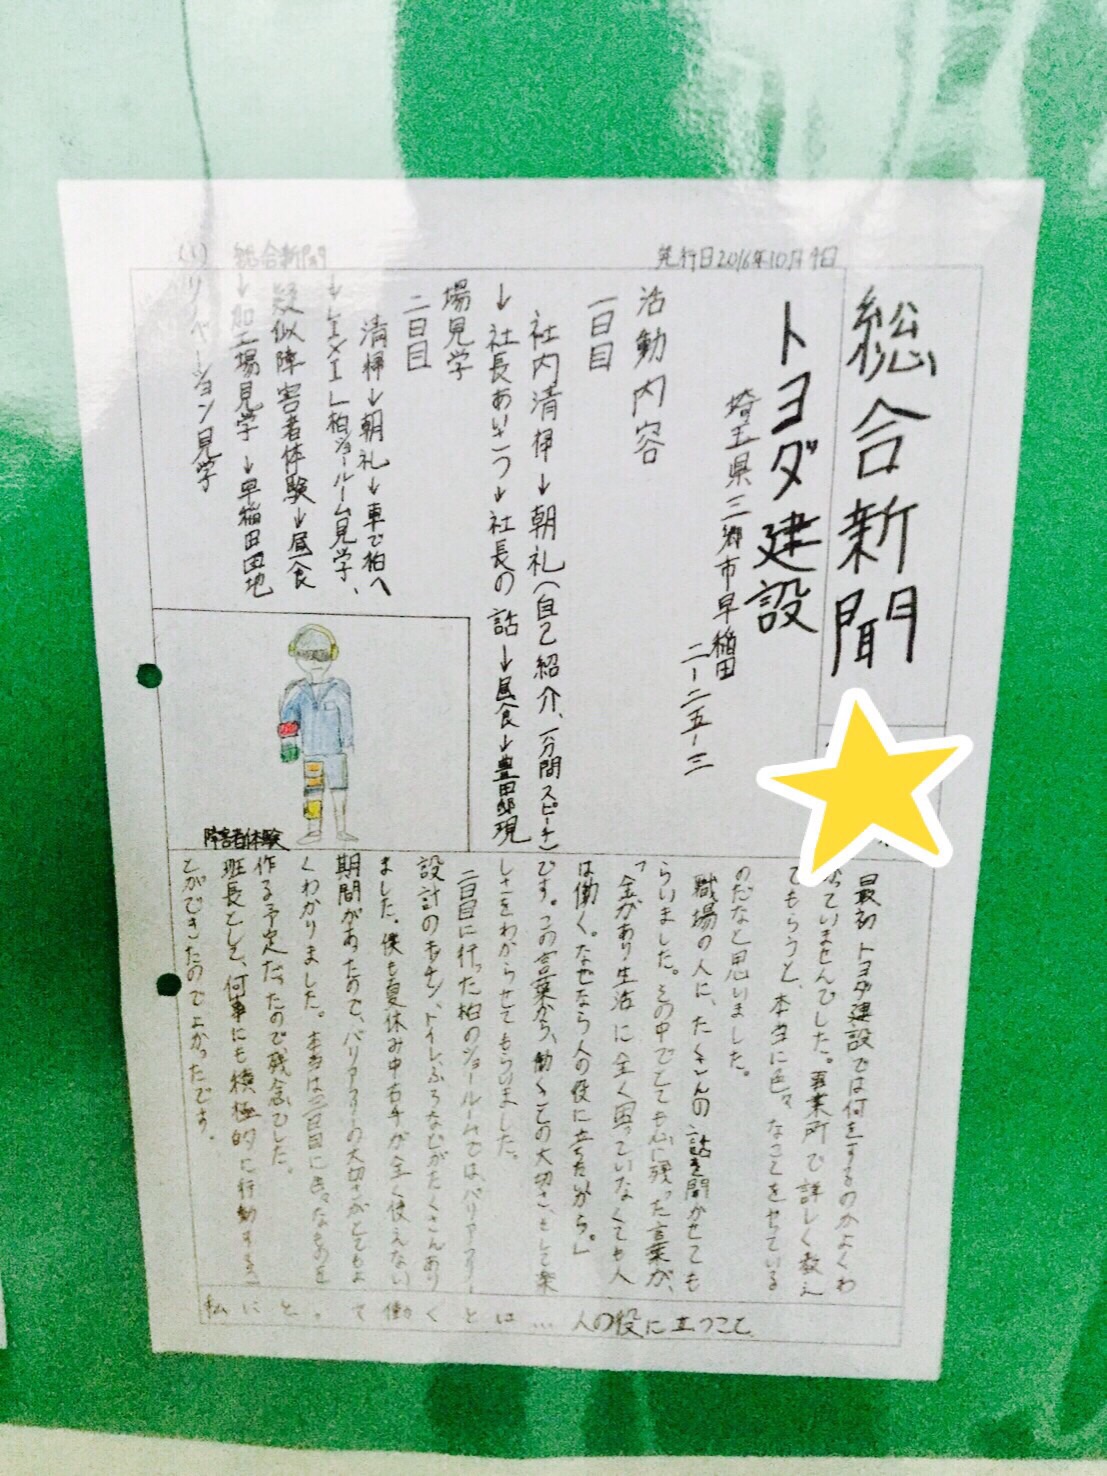 発行日2016年10月9日
(1) 総合新聞
総合新聞
トヨダ建設
埼玉県三郷市早稲田
二-二五-三
活動内容
一日目
社内清掃→朝礼(自己紹介、一分間スピーチ)
→社長あいさつ→社長の話→昼食→豊田邸現
場見学
二日目
清掃→朝礼→車で柏へ
→LIXIL柏ショールーム見学、
疑似障害者体験→昼食
→加工場見学→早稲田団地
リノベーション見学
障害者体験
最初トヨダ建設では何をするのかよくわ
っていませんでした。事業所で詳しく教え
てもらうと、本当に色々なことをやっている
のだなと思いました。
職場の人に、たくさんの話を聞かせても
らいました。その中でとても心に残った言葉が、
「金があり生活に全く困っていなくても人
は働く。なぜなら人の役に立ちたいから。」
です。この言葉から、働くことの大切さ、そして楽
しさをわからせてもらいました。
二日目に行った柏のショールームでは、バリアフリー
設計のキッチン、トイレ、ふろなどがたくさんあり
ました。僕も夏休み中右手が全く使えない
期間があったので、バリアフリーの大切さがとてもよ
くわかりました。本当は二日目に色々なものを
作る予定だったので、残念でした。
班長として、何事にも積極的に行動するこ
とができたのでよかったです。
私にとって働くとは…人の役に立つこと